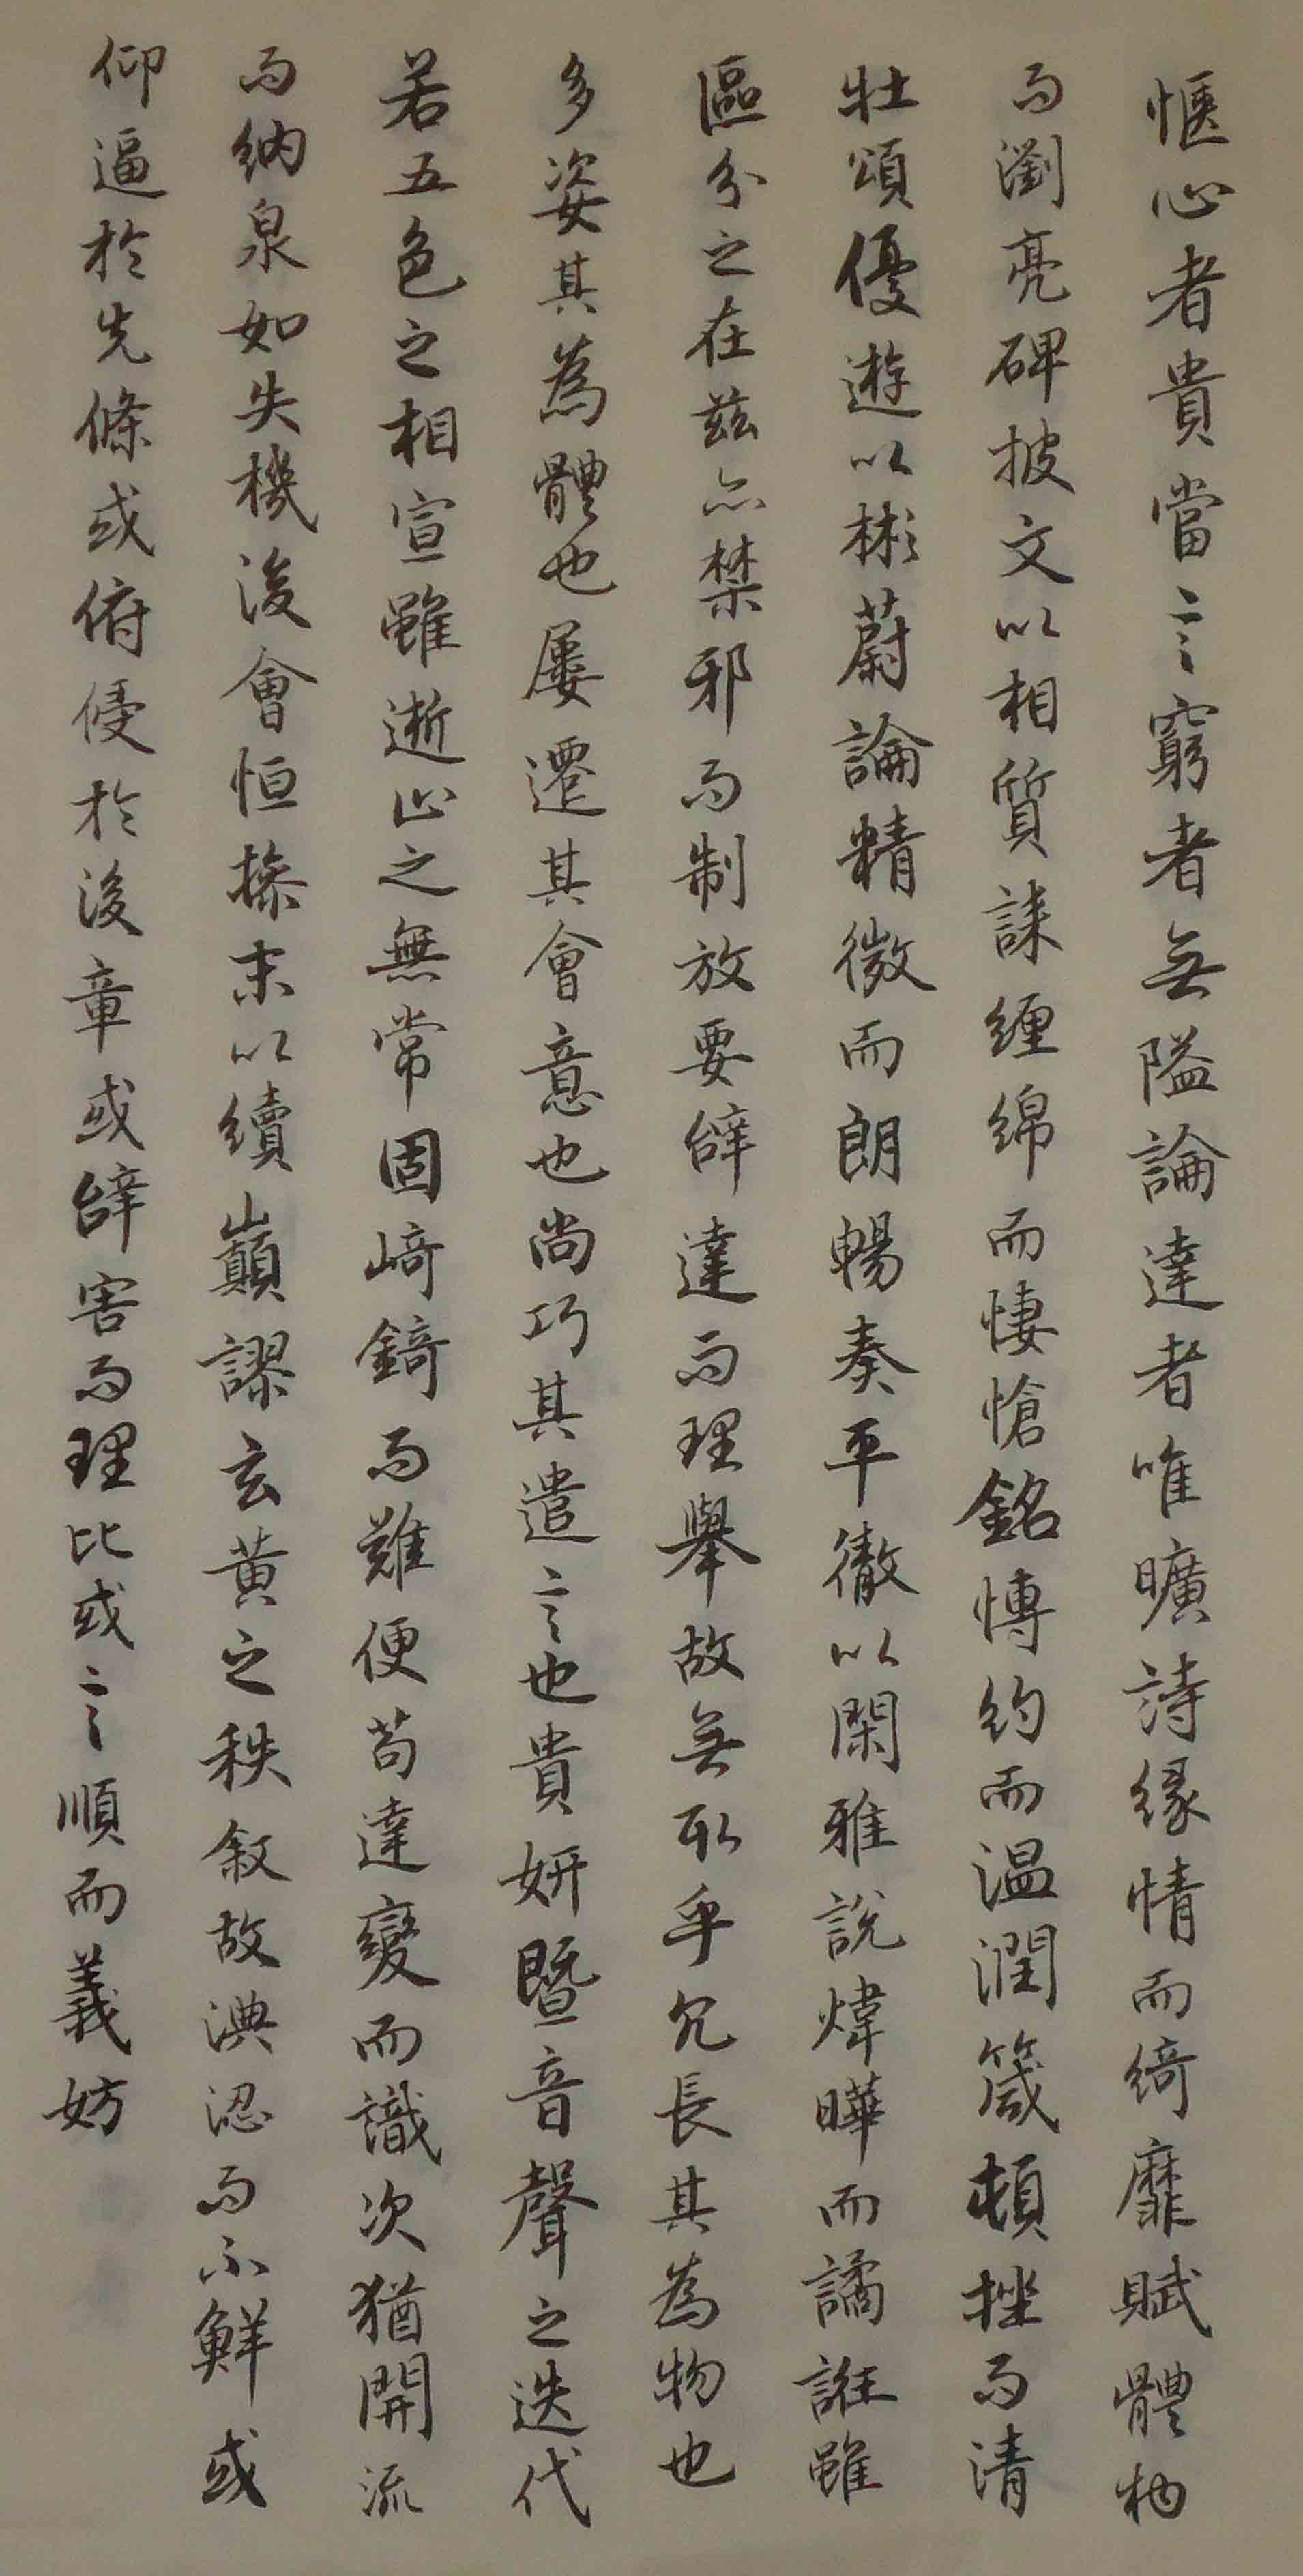 愜心者貴當言窮者無隘論達者唯曠詩緣情而綺靡賦體物
而瀏亮碑披文以相質誄纏綿而悽愴銘博約而温潤箴頓挫而清
壯頌優遊以彬蔚論精微而朗暢奏平徹以閑雅說煒曄而譎誑雖
區分之在茲亦禁邪而制放要辭達而理舉故無取乎冗長其為物也
多姿其為體也屢遷其會意也尚巧其遣言也貴妍暨音聲之迭代
若五色之相宣雖逝止之無常固崎錡而難便苟達變而識次猶開流
而納泉如失機後會恒操末以續巔謬玄黃之秩叙故淟涊而不鮮或
仰逼於先條或俯侵於後章或辭害而理比或言順而義妨